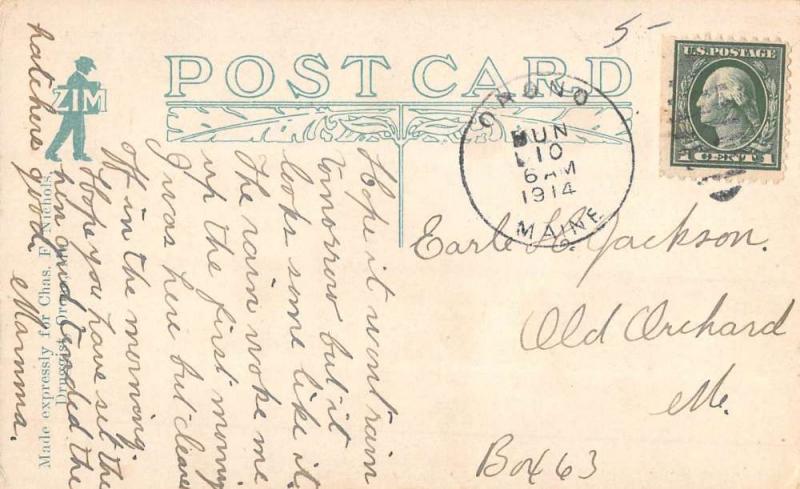 POST CARD
ZIM
5-
U.S. POSTAGE
1 CENT 1
ORONO
JUN
10
6 AM
1914
MAINE
Hope it wont rain
tomorrow but it
looks some like it.
The rain woke me
up the first morning
I was here but cleared
off in the morning.
Hope you have set the
hen and tended the
hatchers good.
Mamma.
Made expressly for Chas. F. Nichols,
Druggist, Orono,
Earle H. Jackson.
Old Orchard
Me.
Box 63